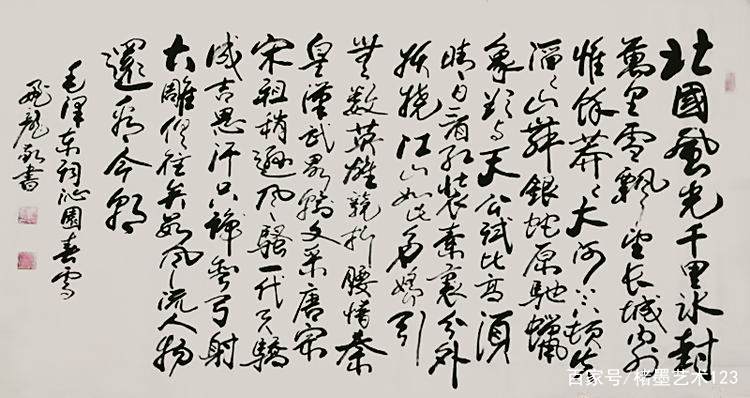 北國風光千里冰封
萬里雪飄望長城内外
惟餘莽莽大河上下頓失
滔滔山舞銀蛇原馳蠟
象欲与天公試比高須
晴日看紅裝素裹分外
妖嬈江山如此多嬌引
無數英雄競折腰惜秦
皇漢武略輸文采唐宗
宋祖稍遜風騷一代天驕
成吉思汗只識彎弓射
大雕俱往矣數風流人物
還看今朝
毛澤东詞沁園春雪
飛龍敬書
百家号/楮墨艺术123